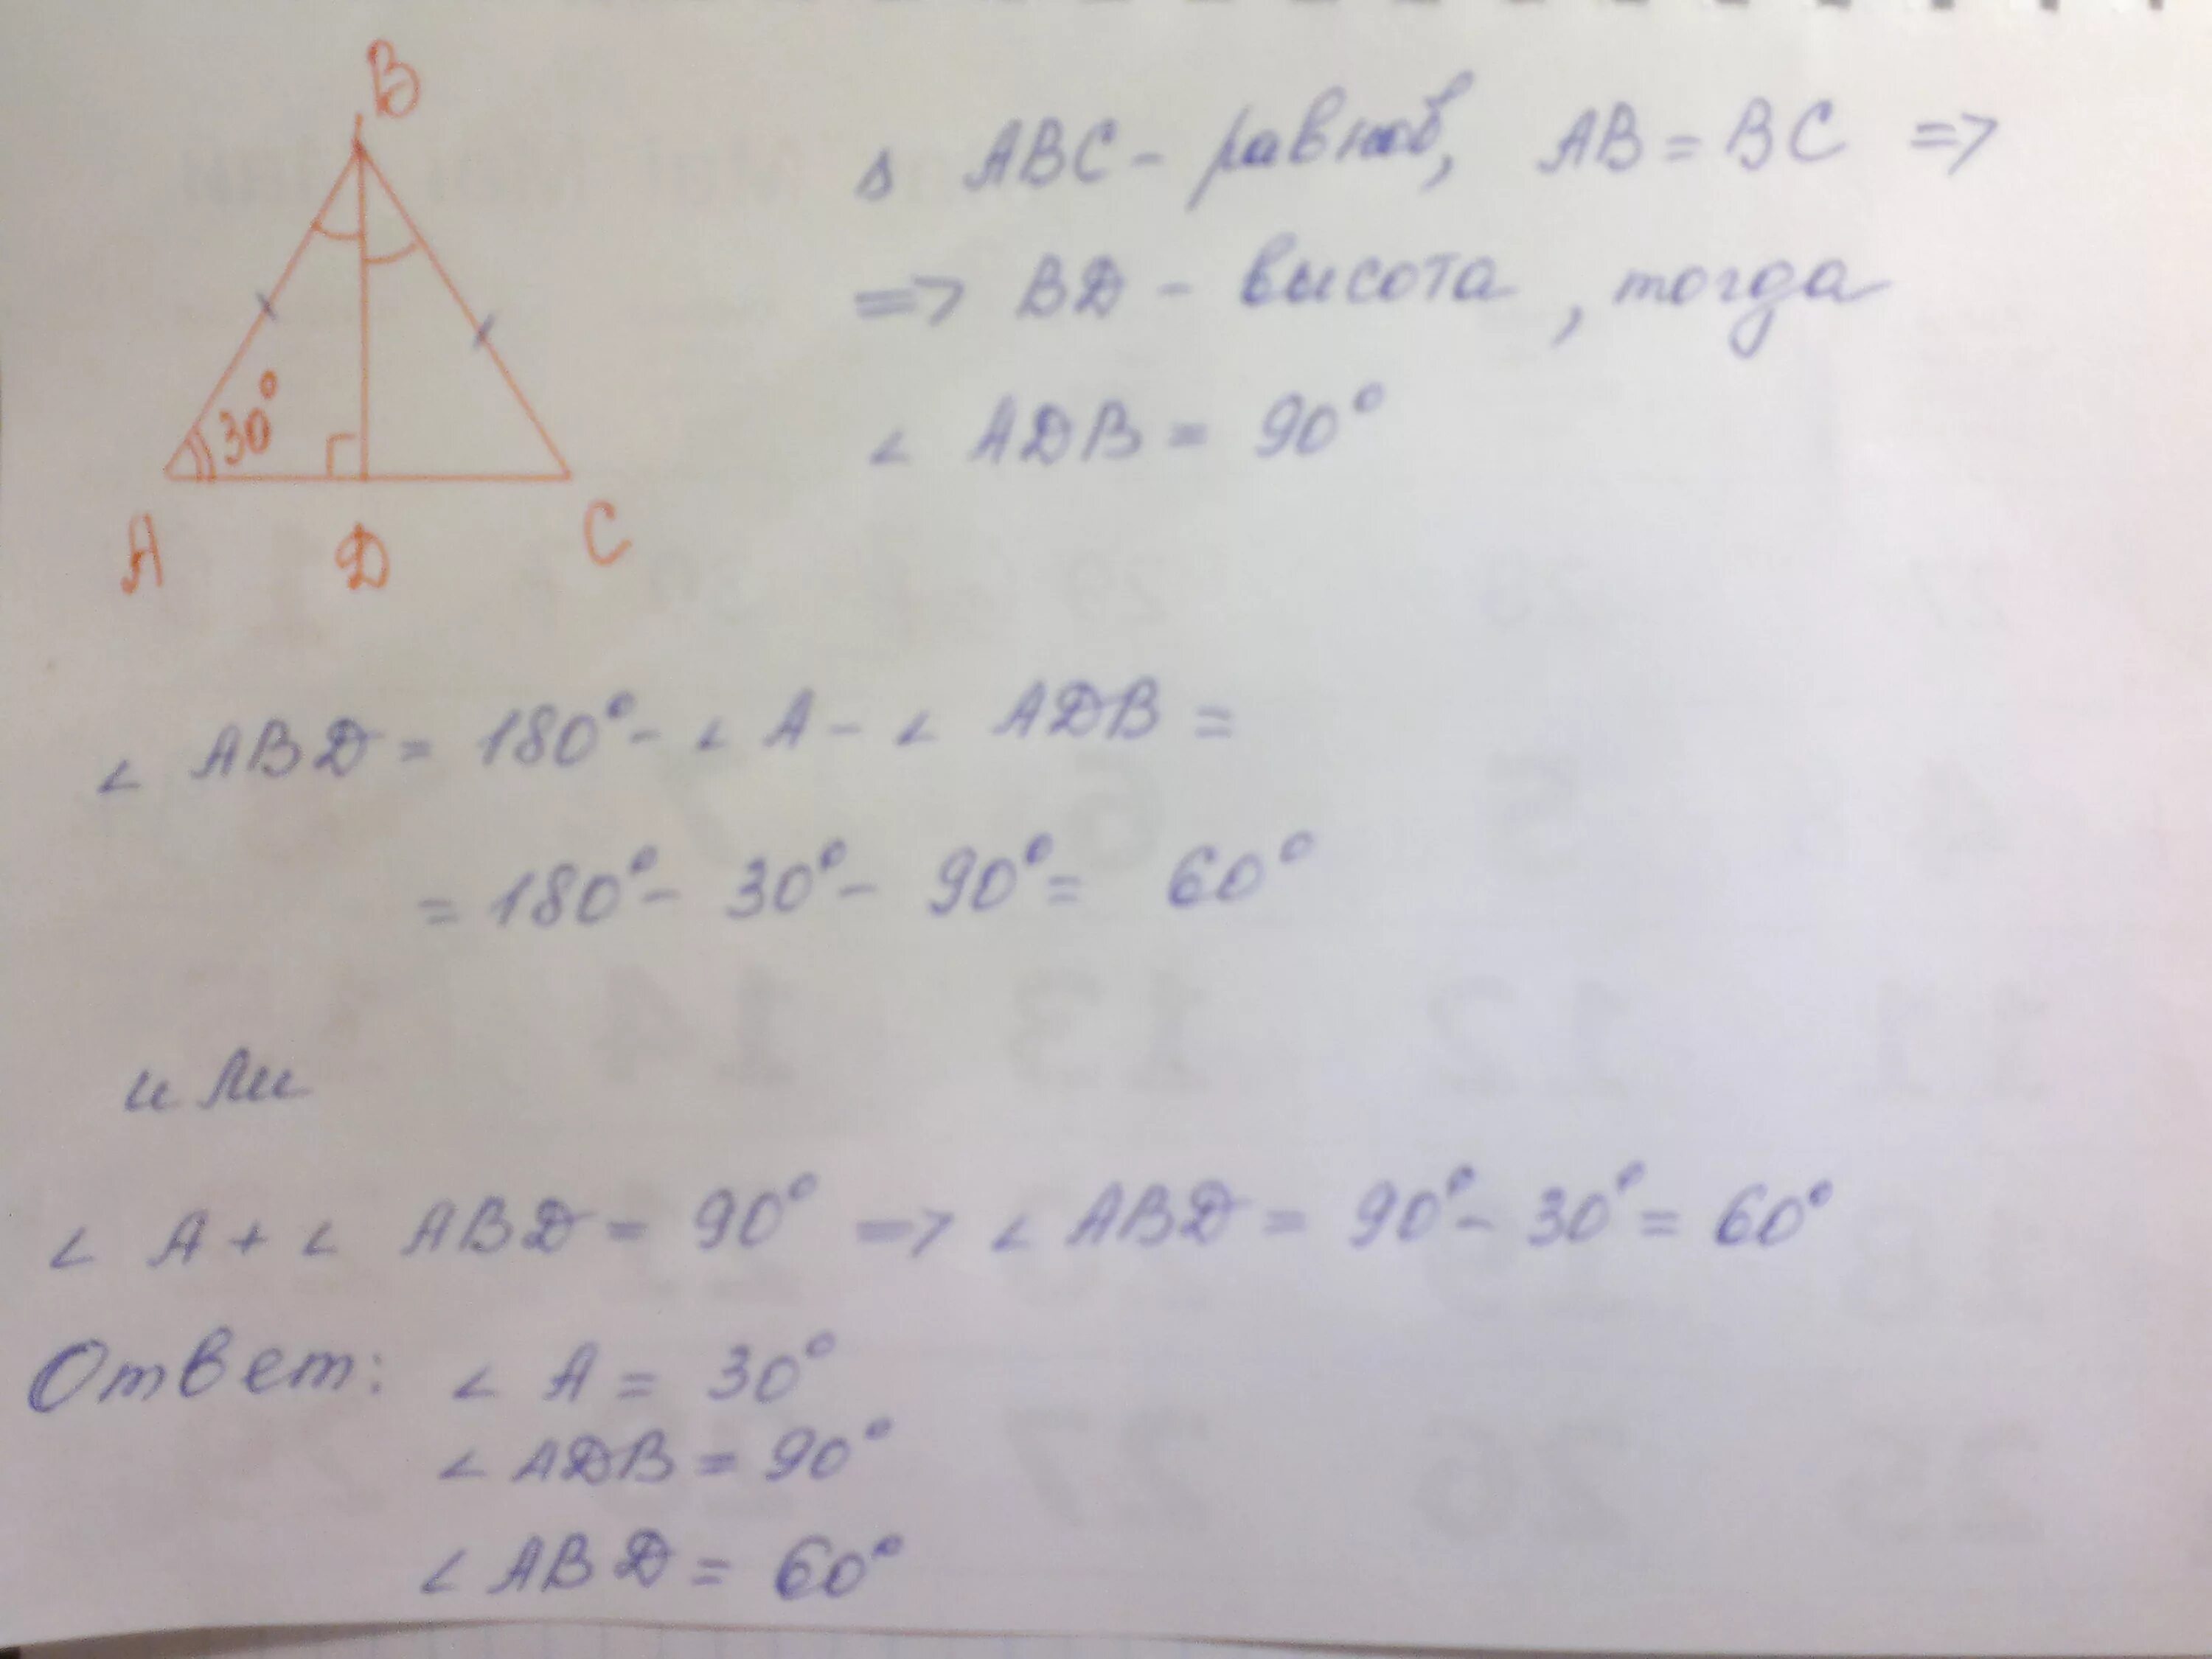 B
30°
A
D
C
Δ ABC - равноб, AB = BC =>
=> BD - высота, тогда
∠ ADB = 90°
∠ ABD = 180° - ∠ A - ∠ ADB =
= 180° - 30° - 90° = 60°
или
∠ A + ∠ ABD = 90° => ∠ ABD = 90° - 30° = 60°
Ответ: ∠ A = 30°
∠ ADB = 90°
∠ ABD = 60°